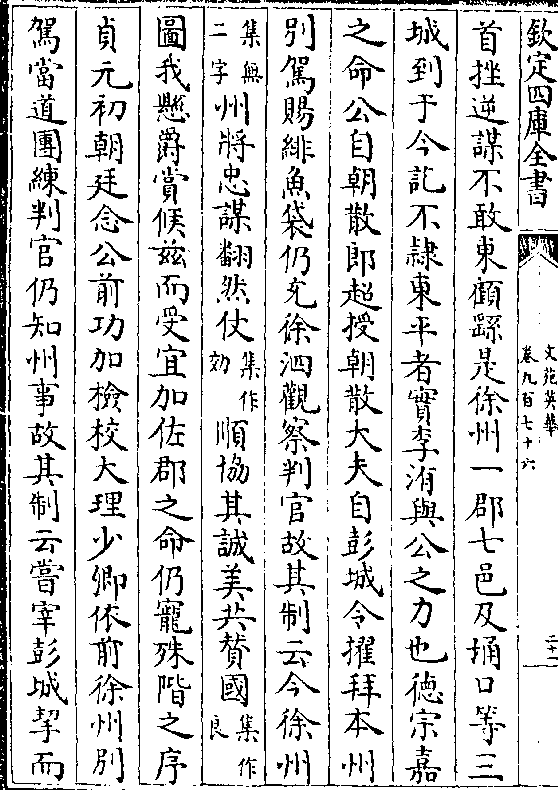 欽定四庫全書
文苑英華
卷九百七十六
二十一
首挫逆謀不敢東顧繇是徐州一郡七邑及埇口等三
城到于今訖不隷東平者實李洧與公之力也德宗嘉
之命公自朝散郎超授朝散大夫自彭城令擢拜本州
别駕賜緋魚袋仍充徐泗觀察判官故其制云今徐州
集無二字州將忠謀翻然仗集作効順協其誠美共賛國集作良
圖我懸爵賞候兹而受宜加佐郡之命仍寵殊階之序
貞元初朝廷念公前功加檢校大理少卿依前徐州别
駕當道團練判官仍知州事故其制云嘗宰彭城挈而